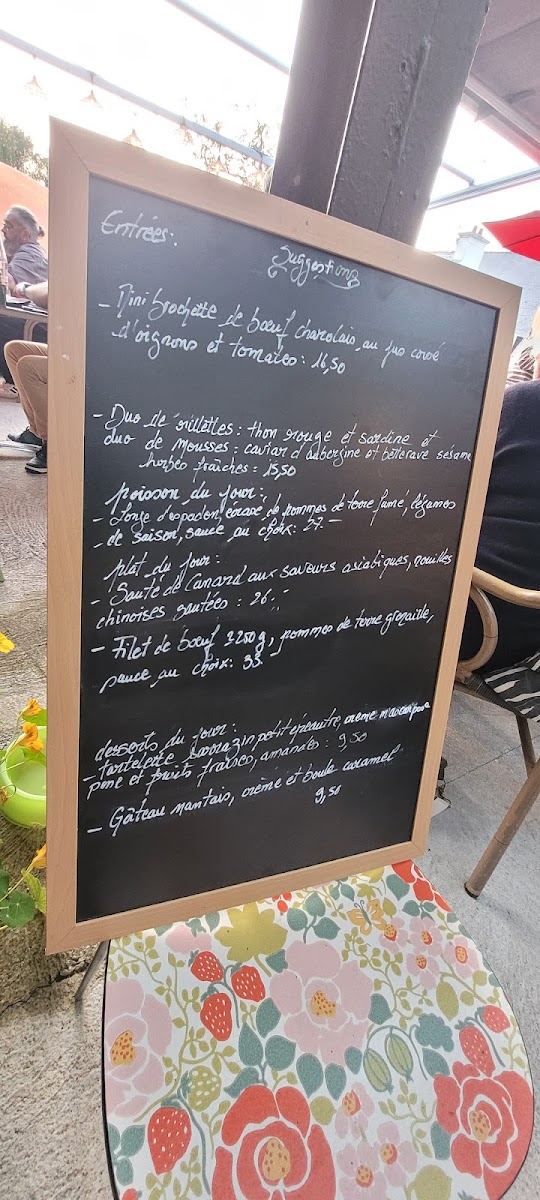 Entrées:
Suggestions
- Mini brochette de bœuf charolais au jus corsé
d'oignons et tomates : 16,50
- Duo de rillettes : thon rouge et sardine et
duo de mousses : caviar d'aubergine et betterave sésame
herbes fraîches : 15,50
poisson du jour :
- Longe d'espadon, écrasé de pommes de terre fumé, légumes
- de saison, sauce au choix: 27.-
plat du jour :
- Sauté de Canard aux saveurs asiatiques, nouilles
chinoises sautées : 26.-
- Filet de bœuf 250g, pommes de terre grenaille,
sauce au choix: 33.
desserts du jour :
- tartelette sarrazin petit épeautre, crème mascarpone
pone et fruits fraises, amandes : 9,50
- Gâteau nantais, crème et boule caramel
9,50